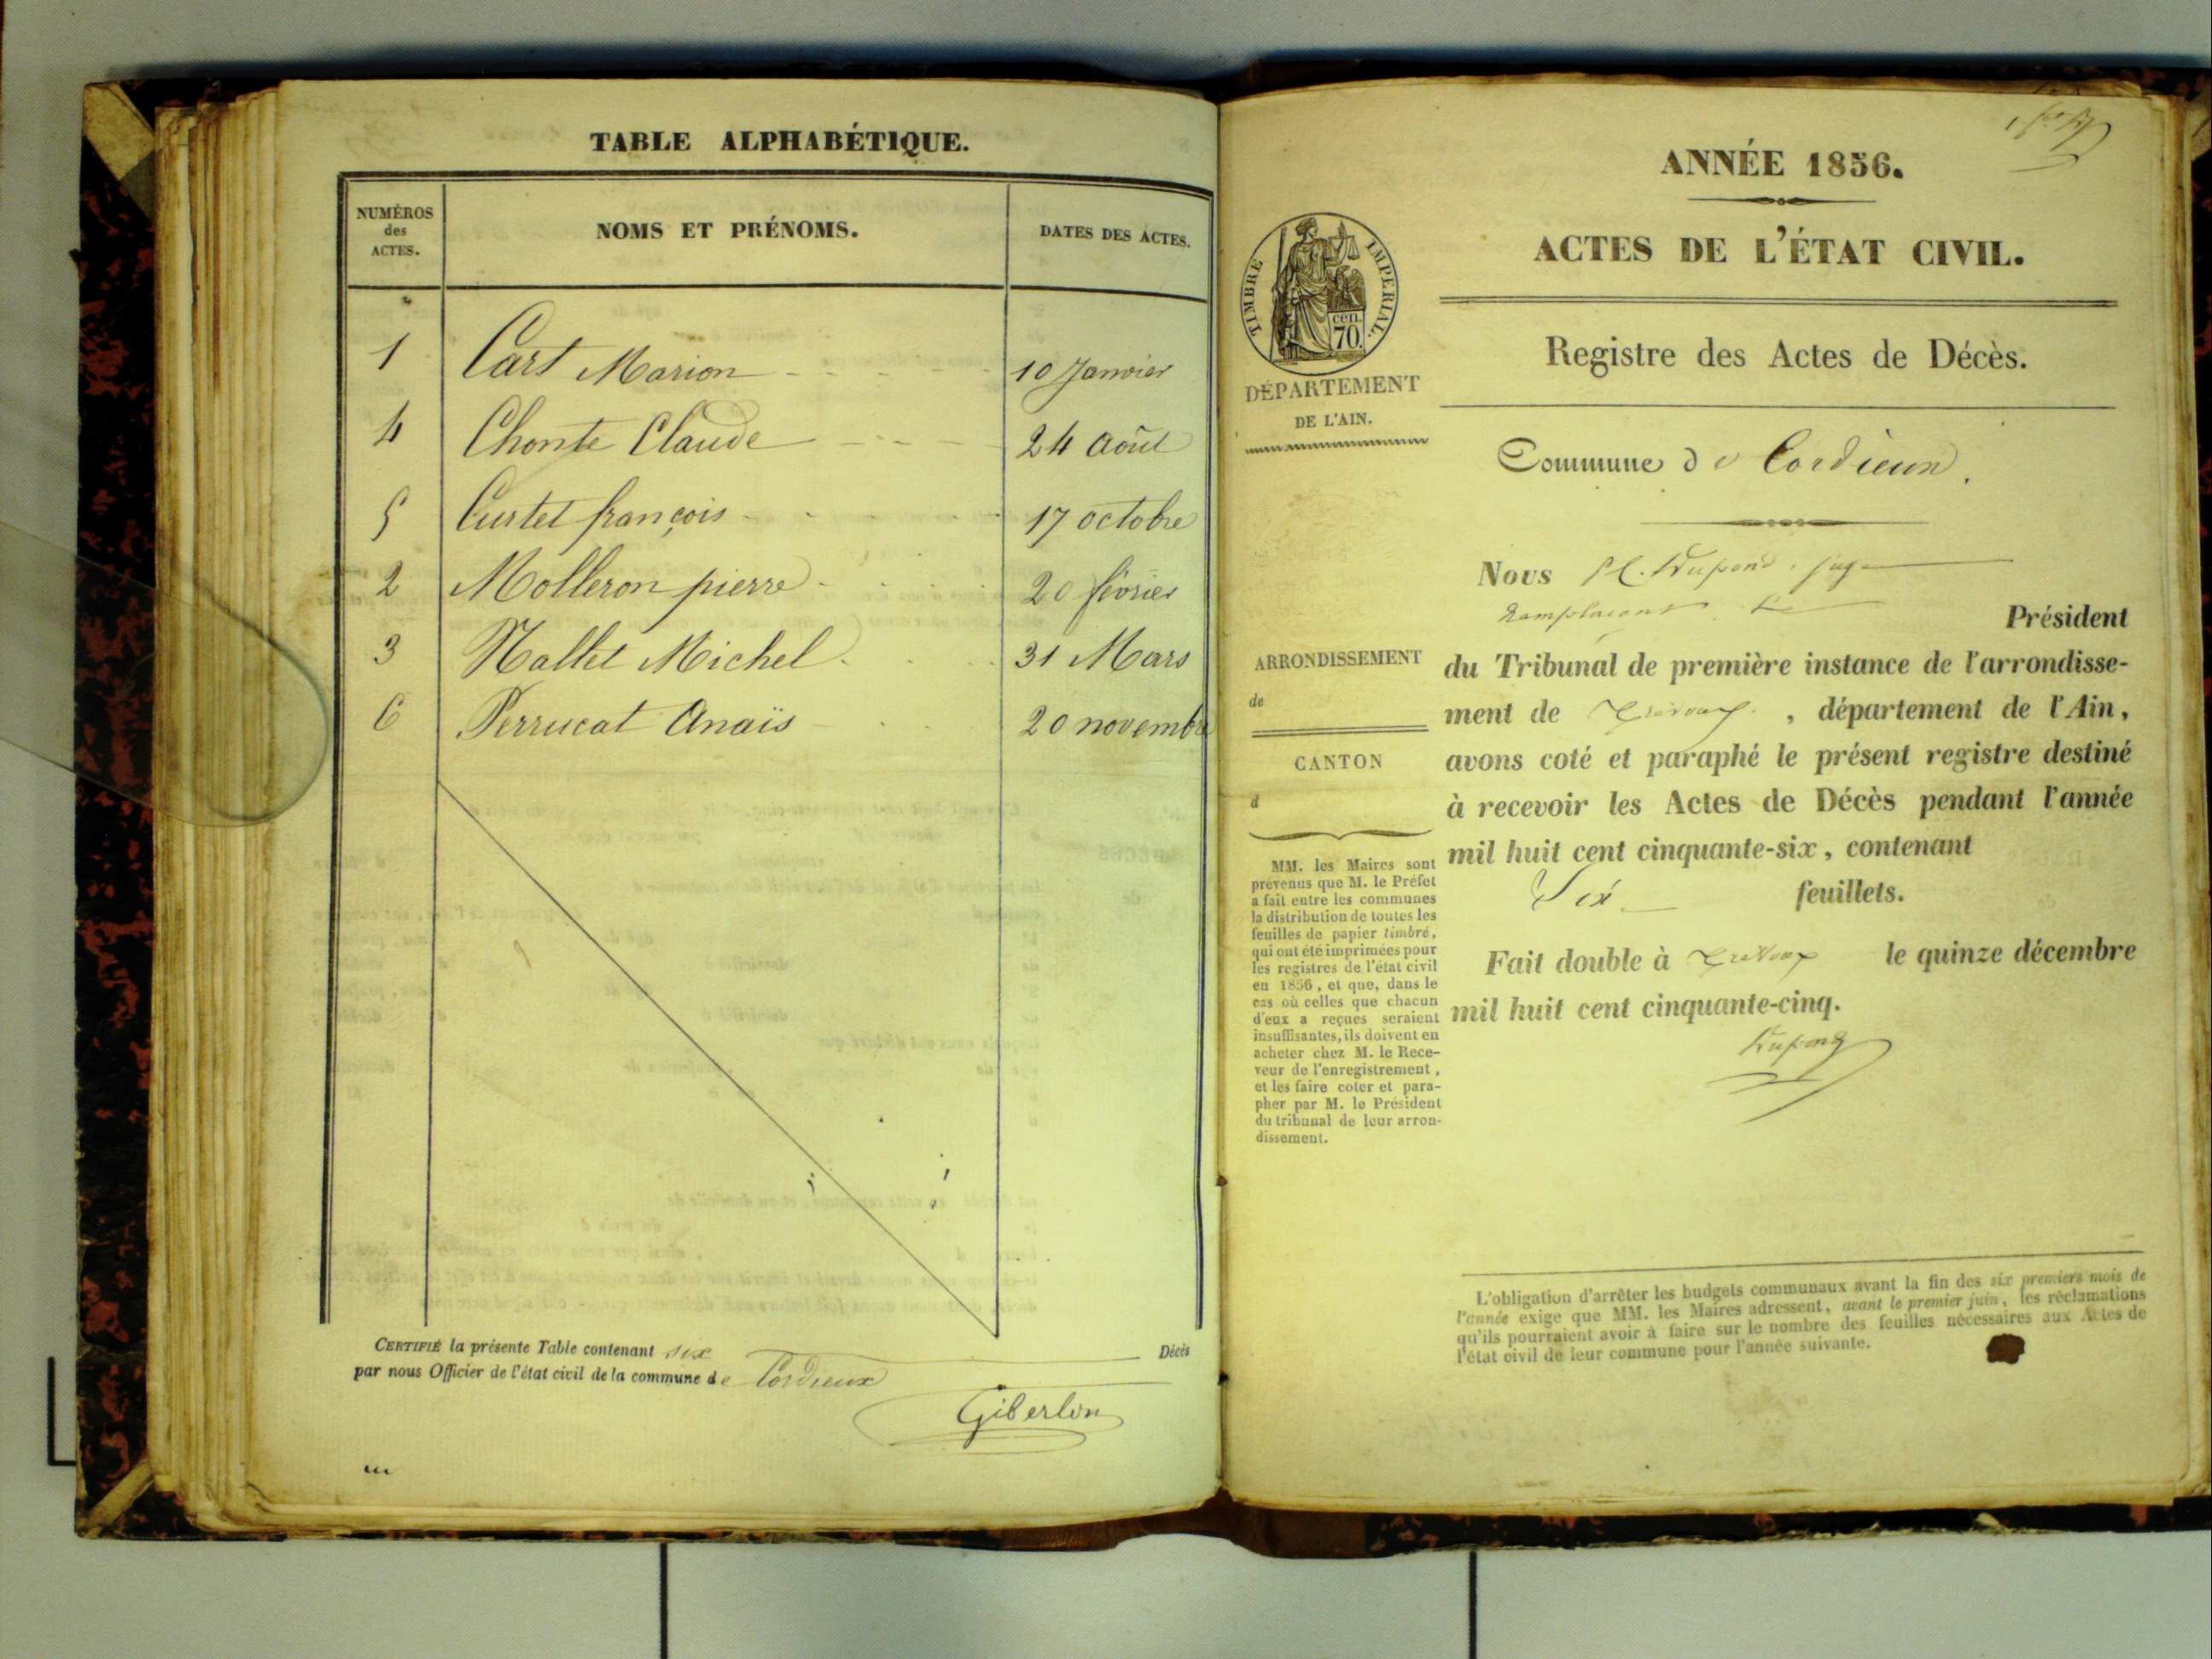 TABLE ALPHABÉTIQUE.
NUMÉROS des ACTES.
NOMS ET PRÉNOMS.
DATES DES ACTES.
1 Cart Marion 10 Janvier
4 Chonte Claude 24 Août
5 Curtet françois 17 octobre
2 Molleron pierre 20 février
3 Nallet Michel 31 Mars
6 Perrucat Anaïs 20 novembre
CERTIFIÉ la présente Table contenant six Décès
par nous Officier de l'état civil de la commune de Cordieux
Giberlon
ANNÉE 1856.
ACTES DE L'ÉTAT CIVIL.
TIMBRE IMPERIAL.
70 cen.
DÉPARTEMENT
DE L'AIN.
Registre des Actes de Décès.
Commune de Cordieux.
Nous Dupond, juge
Remplacant le Président
ARRONDISSEMENT
de
CANTON
d
du Tribunal de première instance de l'arrondisse-
ment de Trévoux, département de l'Ain,
avons coté et paraphé le présent registre destiné
à recevoir les Actes de Décès pendant l'année
mil huit cent cinquante-six, contenant
Six feuillets.
Fait double à Trevoux le quinze décembre
mil huit cent cinquante-cinq.
Dupond
MM. les Maires sont
prévenus que M. le Préfet
a fait entre les communes
la distribution de toutes les
feuilles de papier timbré,
qui ont été imprimées pour
les registres de l'état civil
en 1856, et que, dans le
cas où celles que chacun
d'eux a reçues seraient
insuffisantes, ils doivent en
acheter chez M. le Rece-
veur de l'enregistrement,
et les faire coter et para-
pher par M. le Président
du tribunal de leur arron-
dissement.
L'obligation d'arrêter les budgets communaux avant la fin des six premiers mois de
l'année exige que MM. les Maires adressent, avant le premier juin, les réclamations
qu'ils pourraient avoir à faire sur le nombre des feuilles nécessaires aux Actes de
l'état civil de leur commune pour l'année suivante.